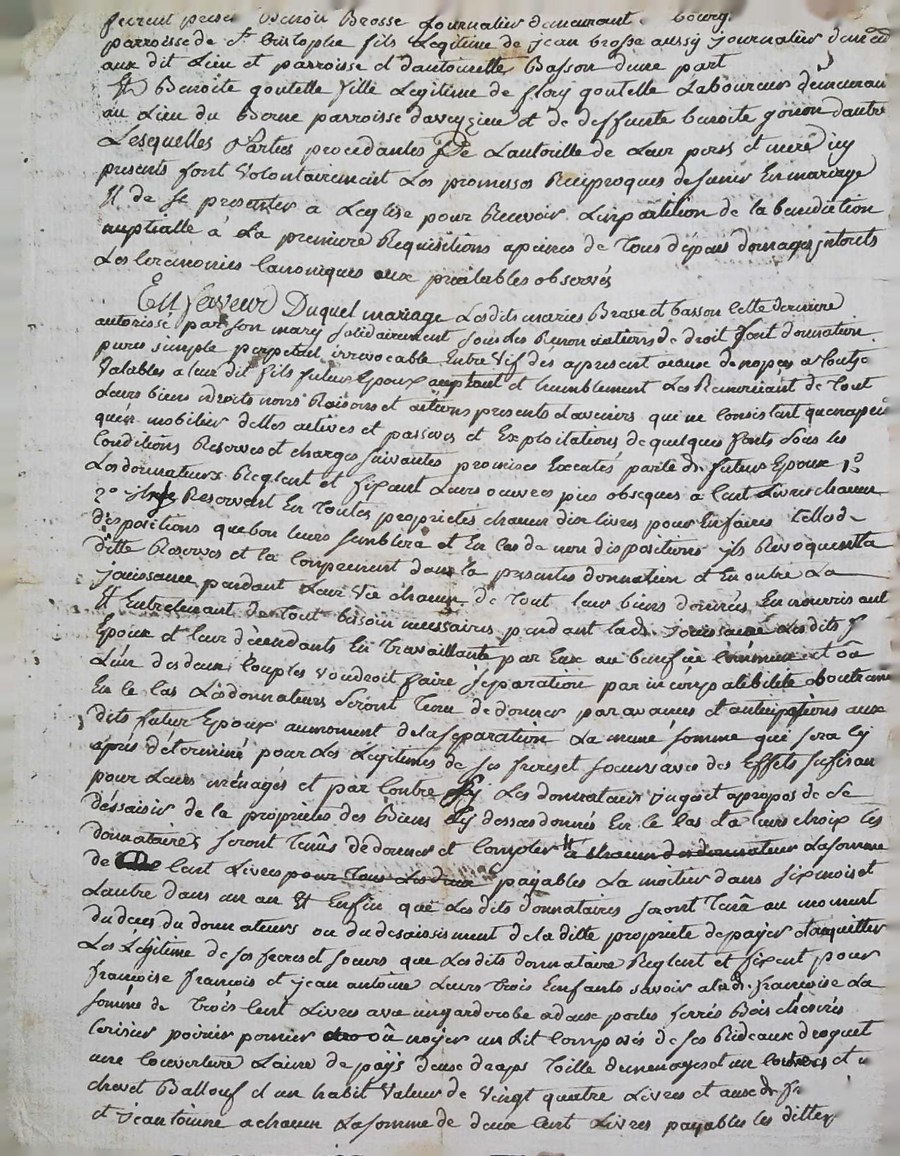 furent present Benoit Brosse Journalier demeurant bourg
parroisse de St Cristophe fils Legitime de jean brosse aussy journalier demt
aux dit Lieu et parroisse et d'antoinette Basson d'une part
Et Benoite goutelle fille Legitime de fleury goutelle Laboureur demeurant
au Lieu du Borne parroisse daveyzieu et de deffunte benoite gonon dautre
Lesquelles Parties procedantes De Lautorille de Leur peres et mere icy
presents font Volontairement Les promesses Reciproques de sunir En mariage
Et de se presenter a Leglise pour Recevoir Linpartition de la benediction
nuptialle à La premiere Requisitions apeines de Tous depans domages interets
Les Ceremonies Canoniques aux prealables observés
En faveur Duquel mariage Lesdits mariés Brosse et basson Cette derniere
autorisé par son mary solidairement sous les Renonciations de droit font donnation
pures simple perpetuel irrevocable Entre Vif des apresent acause de nopces a toutje
Valables a leur dit fils futur Epoux acceptant et humblement Les Remerciant de Tout
Leurs biens droits noms Raisons et actions presents et avenirs qui ne Consistant quenapeu
quen mobilier dettes actives et passives et Exploitations de quelques fonts sous les
Conditions Reserves et charges suivantes promises Executés par led. futeur Epoux 1º
Les donnateurs Reglent et fixant Leurs oeuvres pies obseques a Cent Livres chacun
2º ils se Reservent En Toutes proprietés chacun dix livres pour En faires Telles
dispositions que bon leurs semblera et En Cas de non dispositions ils Revoquent La
ditte Reserves et la Comprennent dans la presentes donnation et En outre La
jouissance pendant Leur Vie chacun de Tout leur biens donnés En nourrisant
Et Entretenant de Tout besoin necessaires pendant lad. jouissance Lesdits f
Epoux et leur decendants En Travaillants par Eux au benefice commun et où
L'un des deux Couples Voudroit faire separation par incompatibilité
En ce Cas Lesdonnateurs seront Tenu de donner par avances et anticipations aux
dits futur Epoux aumoment dela separation La mune somme qui sera Cy
après déterminé pour Les Legitimes de ses freres et soeurs avec des Effets sufisan
pour Leurs ménages et par Contre Les donnateurs Jugoit apropos de se
déssaisir de la proprietes des Biens dessus donnés En ce Cas et a leurs choix les
donnataires seront Tenûs de donner et Compter a chacun des donnateurs La somme
de Cent Livres pour Tous Les deux payables La moitier dans six mois et
Lautre dans un an Et Enfin que Les dits donnataires seront Tenû au moment
du deces du donnateurs ou du desaissisement de la ditte propriete de payer et acquitter
Les Légitime de ses freres et soeurs que Lesdits donnataire Reglent et fixent pour
françoise françois et jean antoine Leurs Trois Enfants savoir a lad. françoise La
somme de Trois Cent Livres avec un garderobe a deux portes ferrés Bois
Cerisier poirier pomier où noyer un Lit Composés de ses Rideaux droguet
une Couverture Laine de païs deux draps Toille de menages et un et
chevet Ballouf et un habit Valeur de Vingt quatre Livres et aux d. fr
et jean toinne a chacun La somme de deux Cent Livres payables les dittes